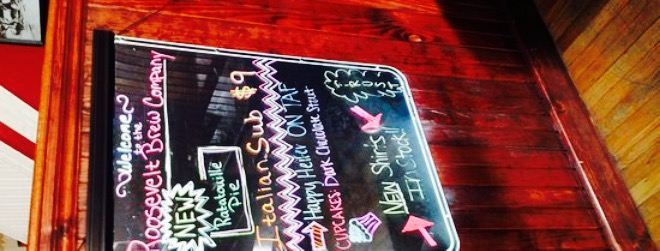 Welcome
to the
Roosevelt Brew Company
NEW
Ratatouille
Pie
Italian Sub
$9
Happy Heifer ON TAP
CUPCAKES: Dark Chocolate Stout
NEW Shirts
In Stock!!